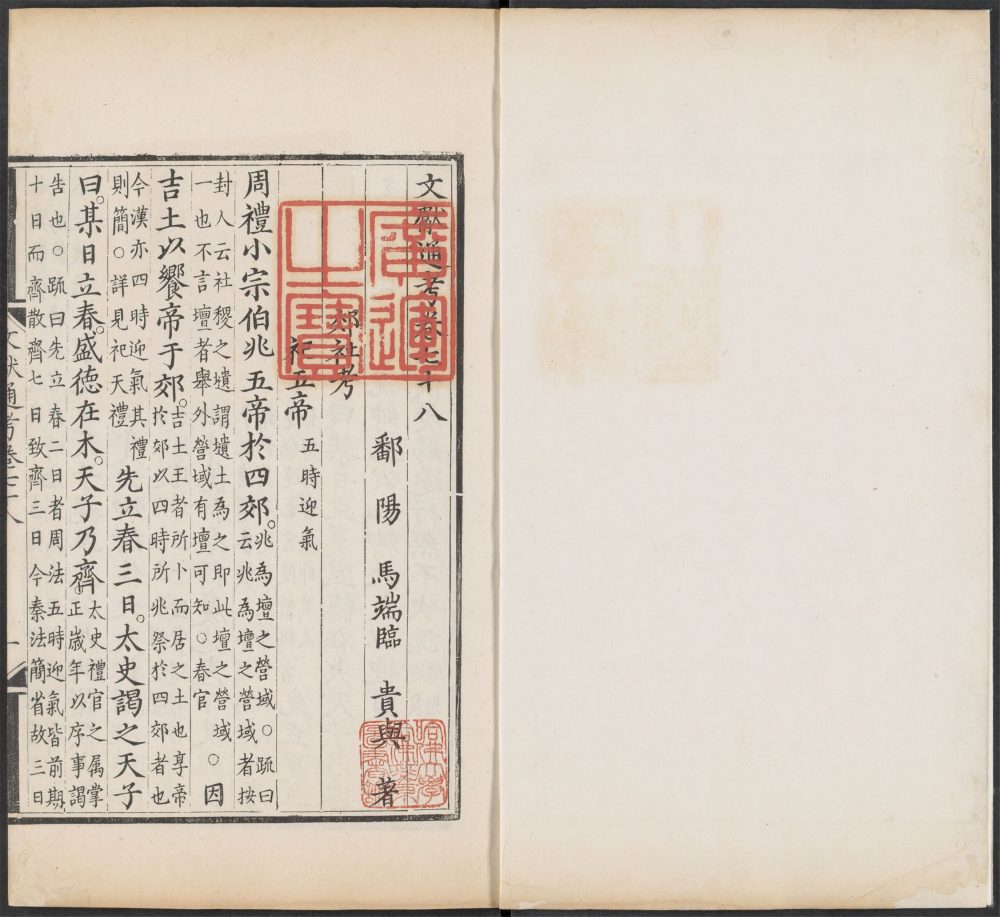 文獻通考卷七十八
鄱陽 馬端臨 貴與 著
郊社考
祀五帝 五時迎氣
周禮小宗伯兆五帝於四郊。兆為壇之營域。○䟽曰
云兆為壇之營域者按
封人云社稷之壝謂壝土為之即此壇之營域。○因
一也不言壇者舉外營域有壇可知○春官
吉土以饗帝于郊。吉土王者所卜而居之土也享帝
於郊以四時所兆祭於四郊者也
今漢亦四時迎氣其禮
則簡○詳見祀天禮
先立春三日。太史謁之天子
曰。某日立春。盛德在木。天子乃齊。太史禮官之属掌
正歲年以序事謁
告也○䟽曰先立春二日者周法五時迎氣皆前期
十日而齊散齊七日致齊三日今秦法簡省故三日
文獻通考卷七十八
廣運
之寶
哈佛大學
漢和
圖書